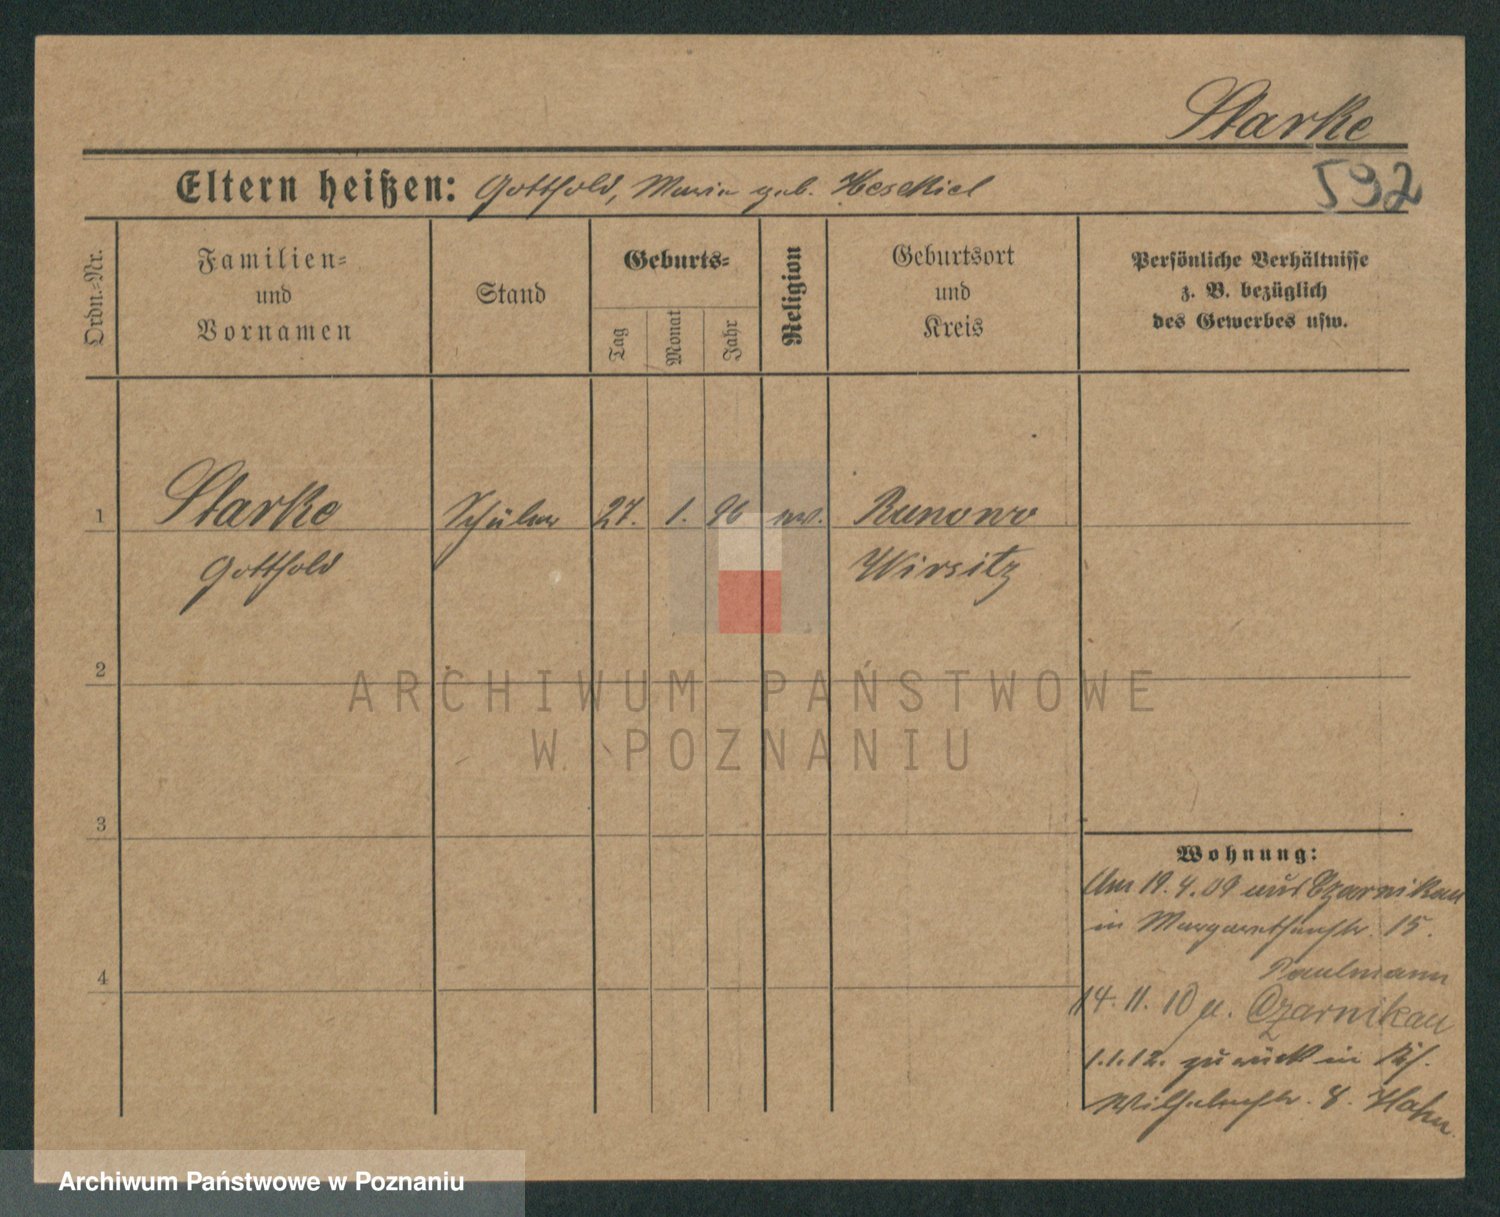 Starke
592
Eltern heißen: Gotthold, Maria geb. Hesekiel
Ordn.-Nr.
Familien-
und
Vornamen
Stand
Geburts-
Tag
Monat
Jahr
Religion
Geburtsort
und
Kreis
Persönliche Verhältnisse
z. B. bezüglich
des Gewerbes usw.
1
Starke
Gotthold
Schüler
27.
1.
96
ev.
Runowo
Wirsitz
2
ARCHIWUM PAŃSTWOWE
W POZNANIU
3
Wohnung:
Am 19.4.09 aus Czarnikau
in Margarethenstr. 15.
Paulmann
14. 11. 10 n. Czarnikau
1.1.12. zurück in
Wilhelmstr. 8. Hahn
4
Archiwum Państwowe w Poznaniu